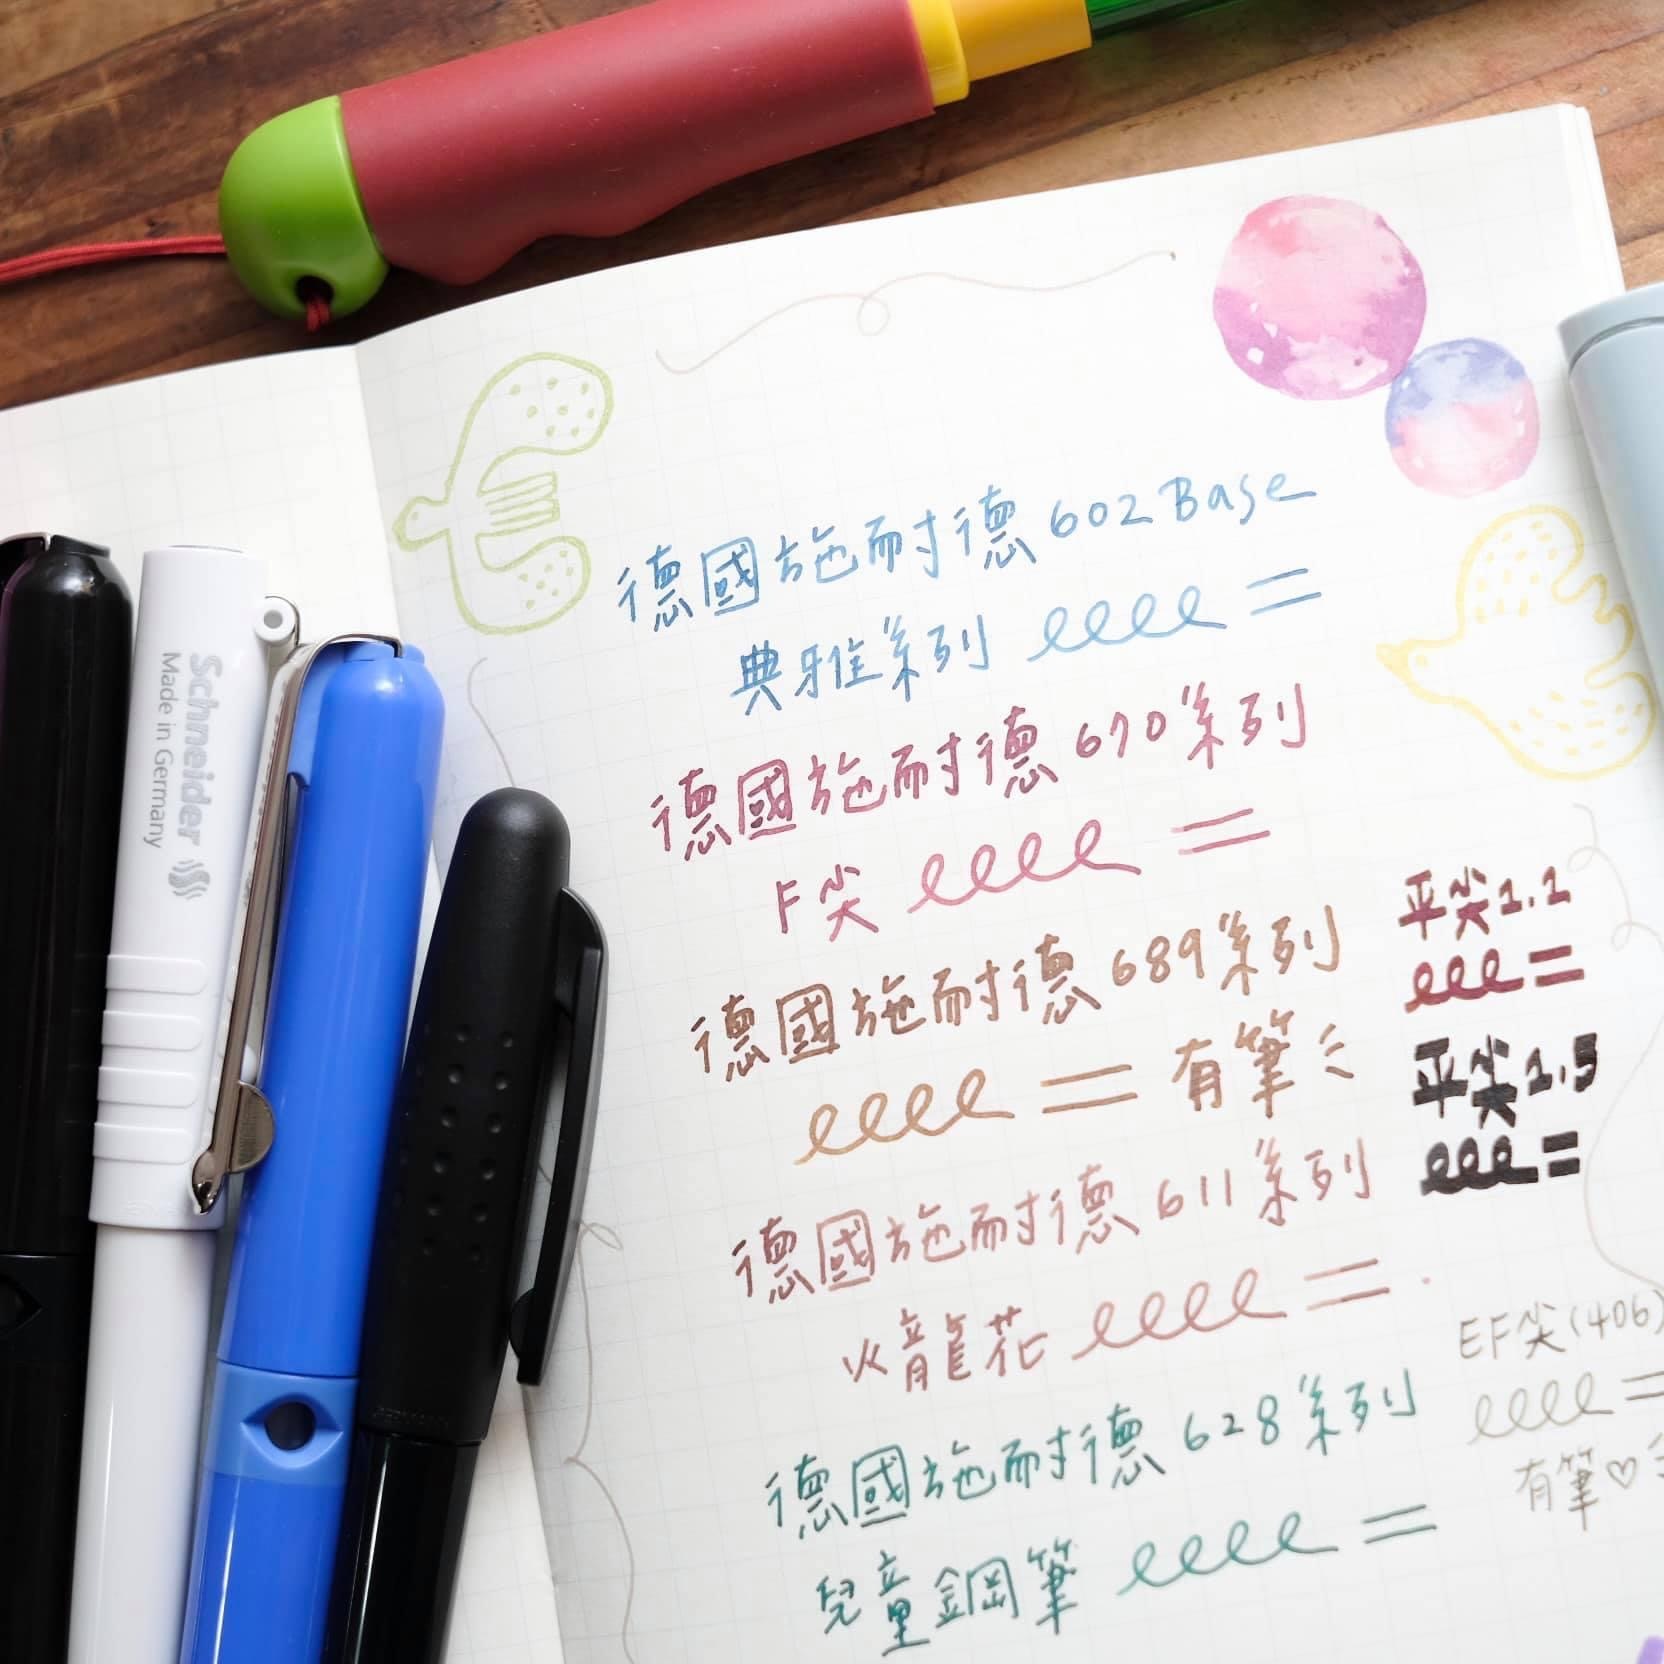 Schneider
Made in Germany
德國施耐德602Base
典雅系列
德國施耐德670系列
F尖
德國施耐德689系列
有筆ミ
平尖1.1
平尖1.5
德國施耐德611系列
火龍花
EF尖(406)
有筆♡
德國施耐德628系列
兒童鋼筆